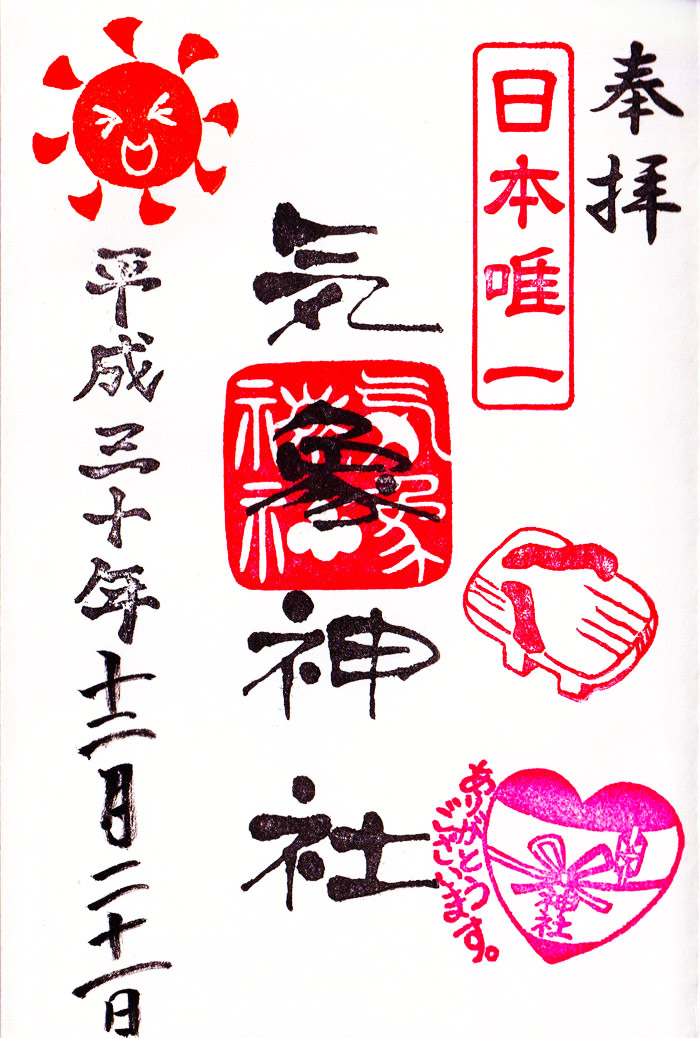 奉拝
日本唯一
気象神社
気象
神社
平成三十年十二月二十一日
ありがとう
ございます。
神社